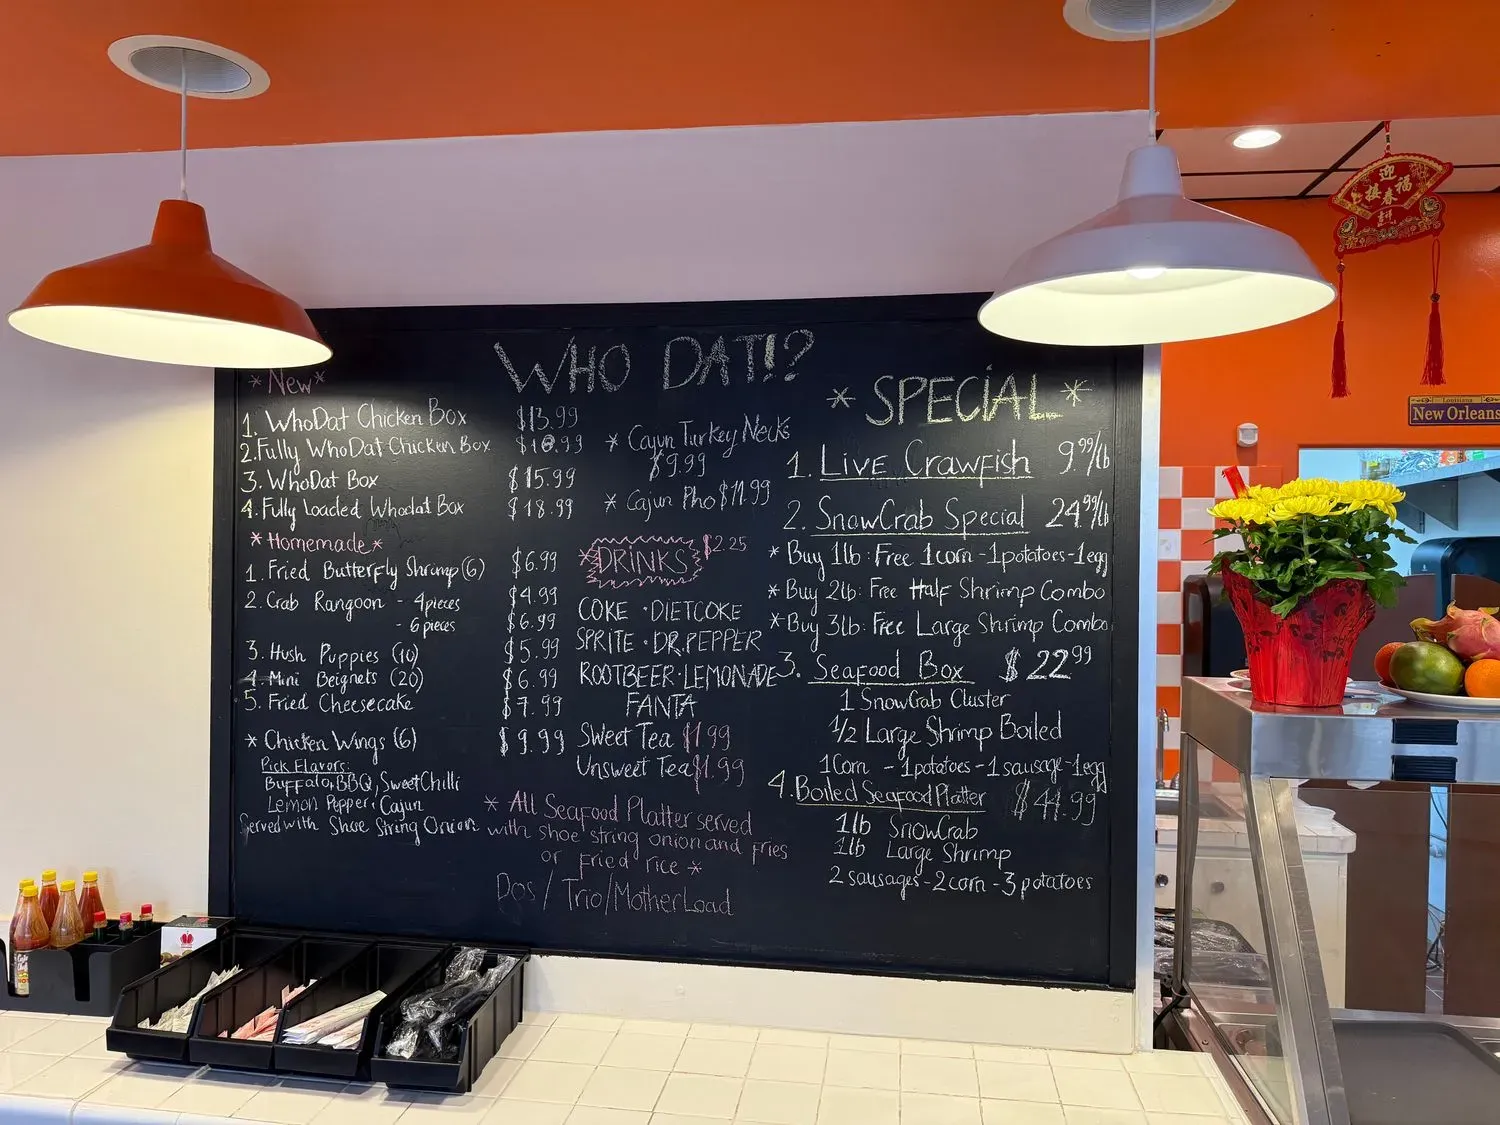 WHO DAT!?
*New*
1. WhoDat Chicken Box $13.99
2. Fully WhoDat Chicken Box
3. WhoDat Box $15.99
4. Fully Loaded Whodat Box $18.99
*Homemade*
1. Fried Butterfly Shrimp (6) $6.99
2. Crab Rangoon - 4 pieces $4.99
- 6 pieces $6.99
3. Hush Puppies (10) $5.99
4. Mini Beignets (20) $6.99
5. Fried Cheesecake $7.99
* Chicken Wings (6) $9.99
Pick Flavors:
Buffalo, BBQ, Sweet Chilli
Lemon Pepper, Cajun
Served with Shoe String Onion
* Cajun Turkey Necks
$9.99
* Cajun Pho $11.99
*DRINKS $2.25
COKE · DIETCOKE
SPRITE · DR. PEPPER
ROOTBEER · LEMONADE
FANTA
Sweet Tea $1.99
Unsweet Tea $1.99
* All Seafood Platter served
with shoe string onion and fries
or fried rice *
Dos / Trio / MotherLoad
* SPECIAL *
1. Live Crawfish 9.99/lb
2. SnowCrab Special 24.99/lb
* Buy 1lb: Free 1 corn - 1 potatoes - 1 egg
* Buy 2lb: Free Half Shrimp Combo
* Buy 3lb: Free Large Shrimp Combo
3. Seafood Box $22.99
1 SnowCrab Cluster
1/2 Large Shrimp Boiled
1 Corn - 1 potatoes - 1 sausage - 1 egg
4. Boiled Seafood Platter $44.99
1lb SnowCrab
1lb Large Shrimp
2 sausages - 2 corn - 3 potatoes
迎
接春福
吉祥
Louisiana
New Orleans